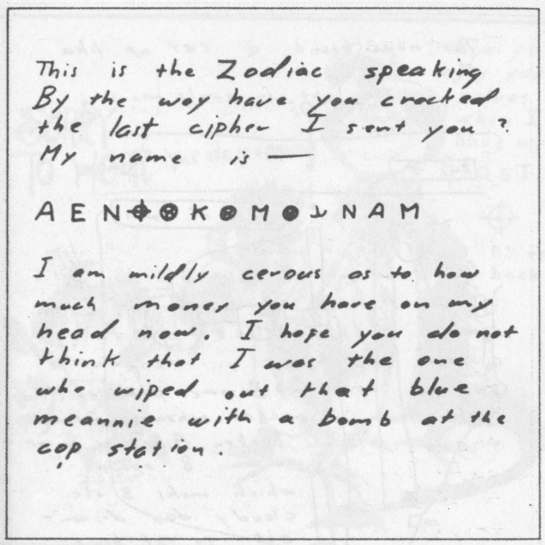 This is the Zodiac speaking
By the way have you cracked
the last cipher I sent you ?
My name is —
A E N ⌖ ⊗ K ⊙ M ⊙ ⅄ N A M
I am mildly cerous as to how
much money you have on my
head now. I hope you do not
think that I was the one
who wiped out that blue
meannie with a bomb at the
cop station.